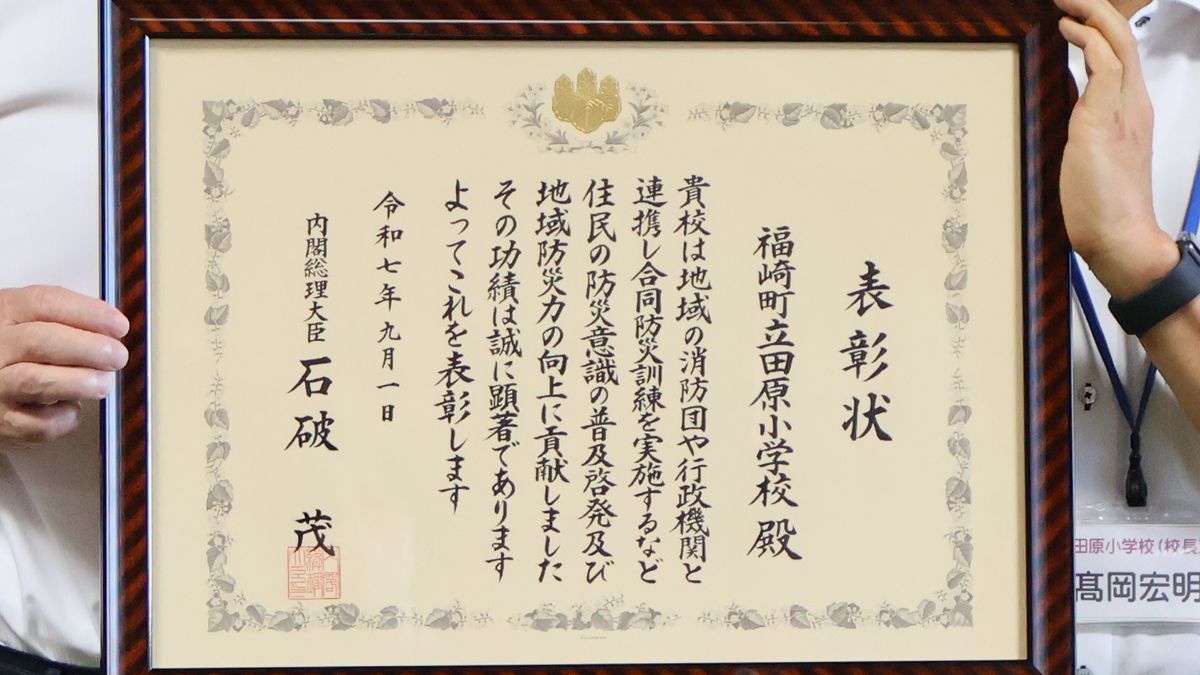 表彰状
福崎町立田原小学校殿
貴校は地域の消防団や行政機関と
連携し合同防災訓練を実施するなど
住民の防災意識の普及啓発及び
地域防災力の向上に貢献しました
その功績は誠に顕著であります
よってこれを表彰します
令和七年九月一日
内閣総理大臣 石破 茂
田原小学校(校長)
髙岡宏明